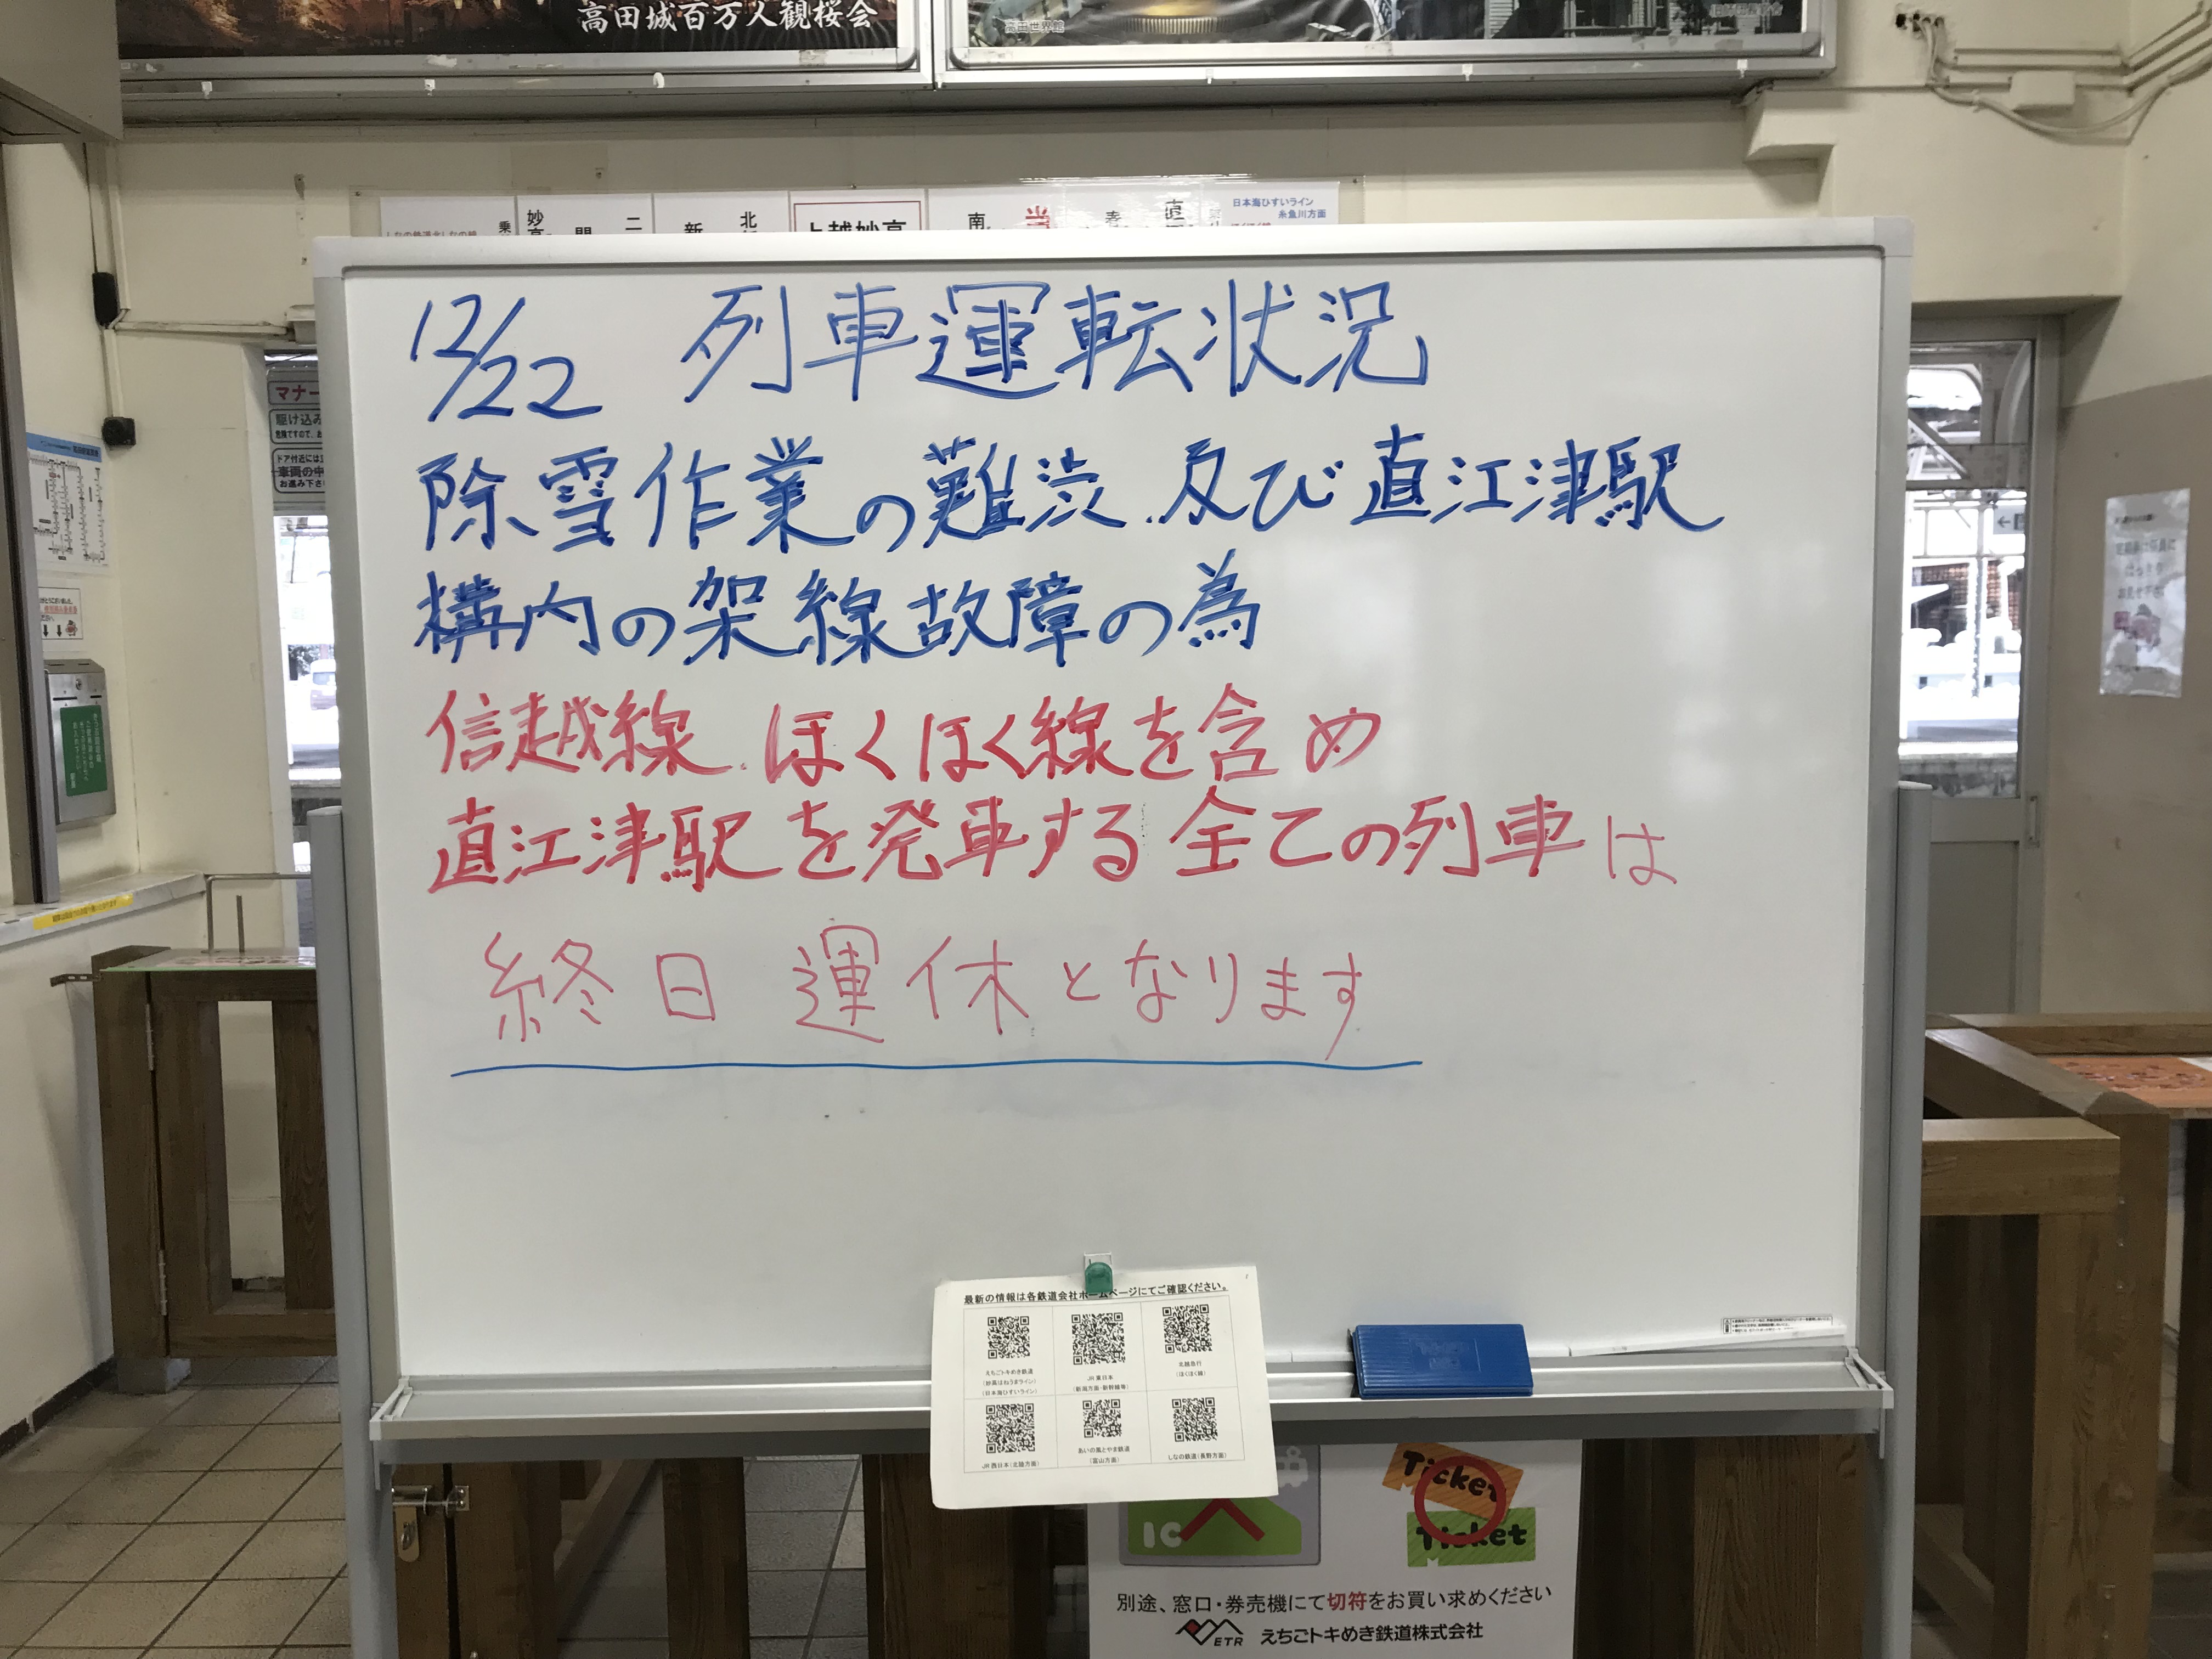 高田城百万人観桜会
高田世界館
日本海ひすいライン
糸魚川方面
上越妙高
マナー
駆け込み
ドア付近には
車両の中
お進み下さ
12/22 列車運転状況
除雪作業の難渋、及び直江津駅
構内の架線故障の為
信越線、ほくほく線を含め
直江津駅を発車する全ての列車は
終日 運休となります
最新の情報は各鉄道会社ホームページにてご確認ください。
えちごトキめき鉄道
(妙高はねうまライン)
(日本海ひすいライン)
JR東日本
(新潟方面・新幹線等)
北越急行
(ほくほく線)
JR西日本(北陸方面)
あいの風とやま鉄道
(富山方面)
しなの鉄道(長野方面)
IC
Ticket
Ticket
別途、窓口・券売機にて切符をお買い求めください
ETR えちごトキめき鉄道株式会社